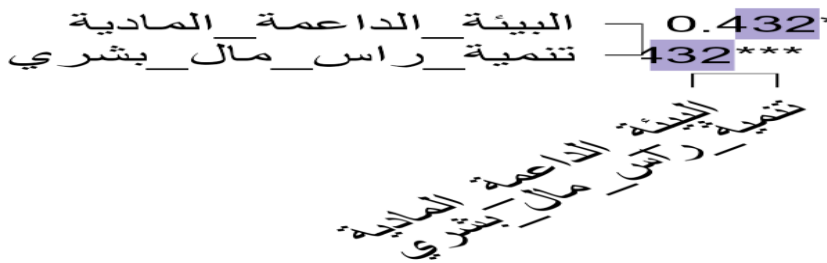 البيئة_الداعمة_المادية 0.432*
تنمية_راس_مال_بشري 432***
البيئة_الداعمة_المادية
تنمية_راس_مال_بشري